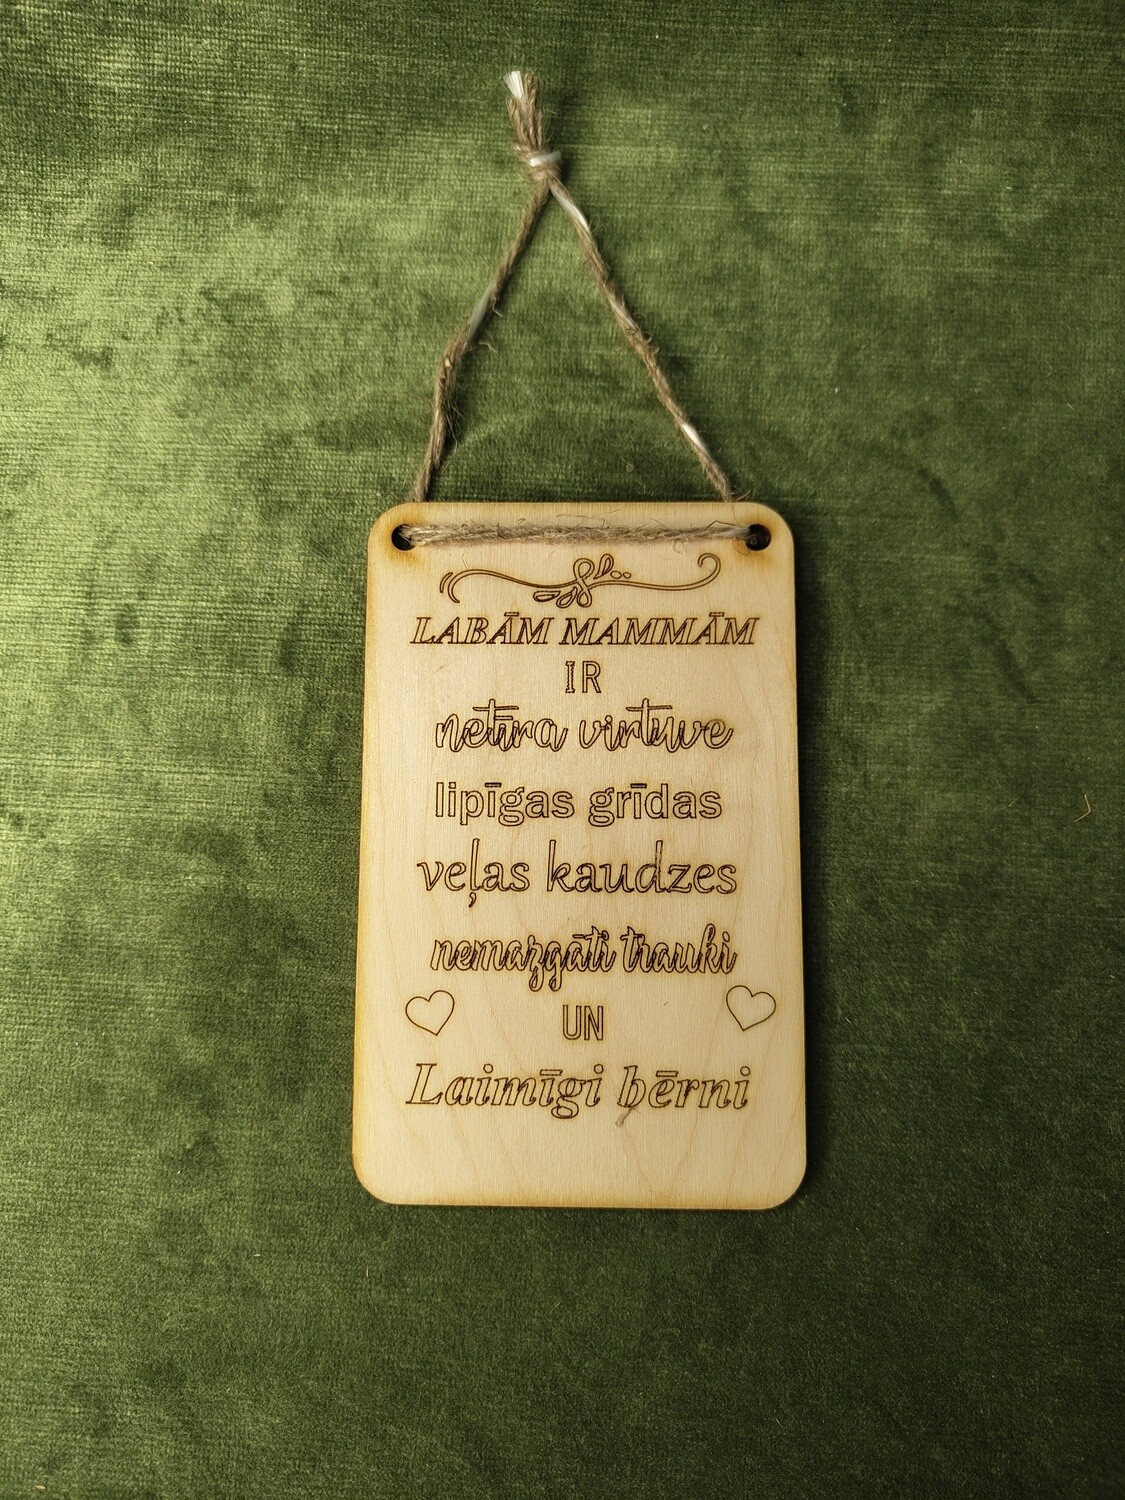 LABĀM MAMMĀM
IR
netīra virtuve
lipīgas grīdas
veļas kaudzes
nemazgāti trauki
UN
Laimīgi bērni